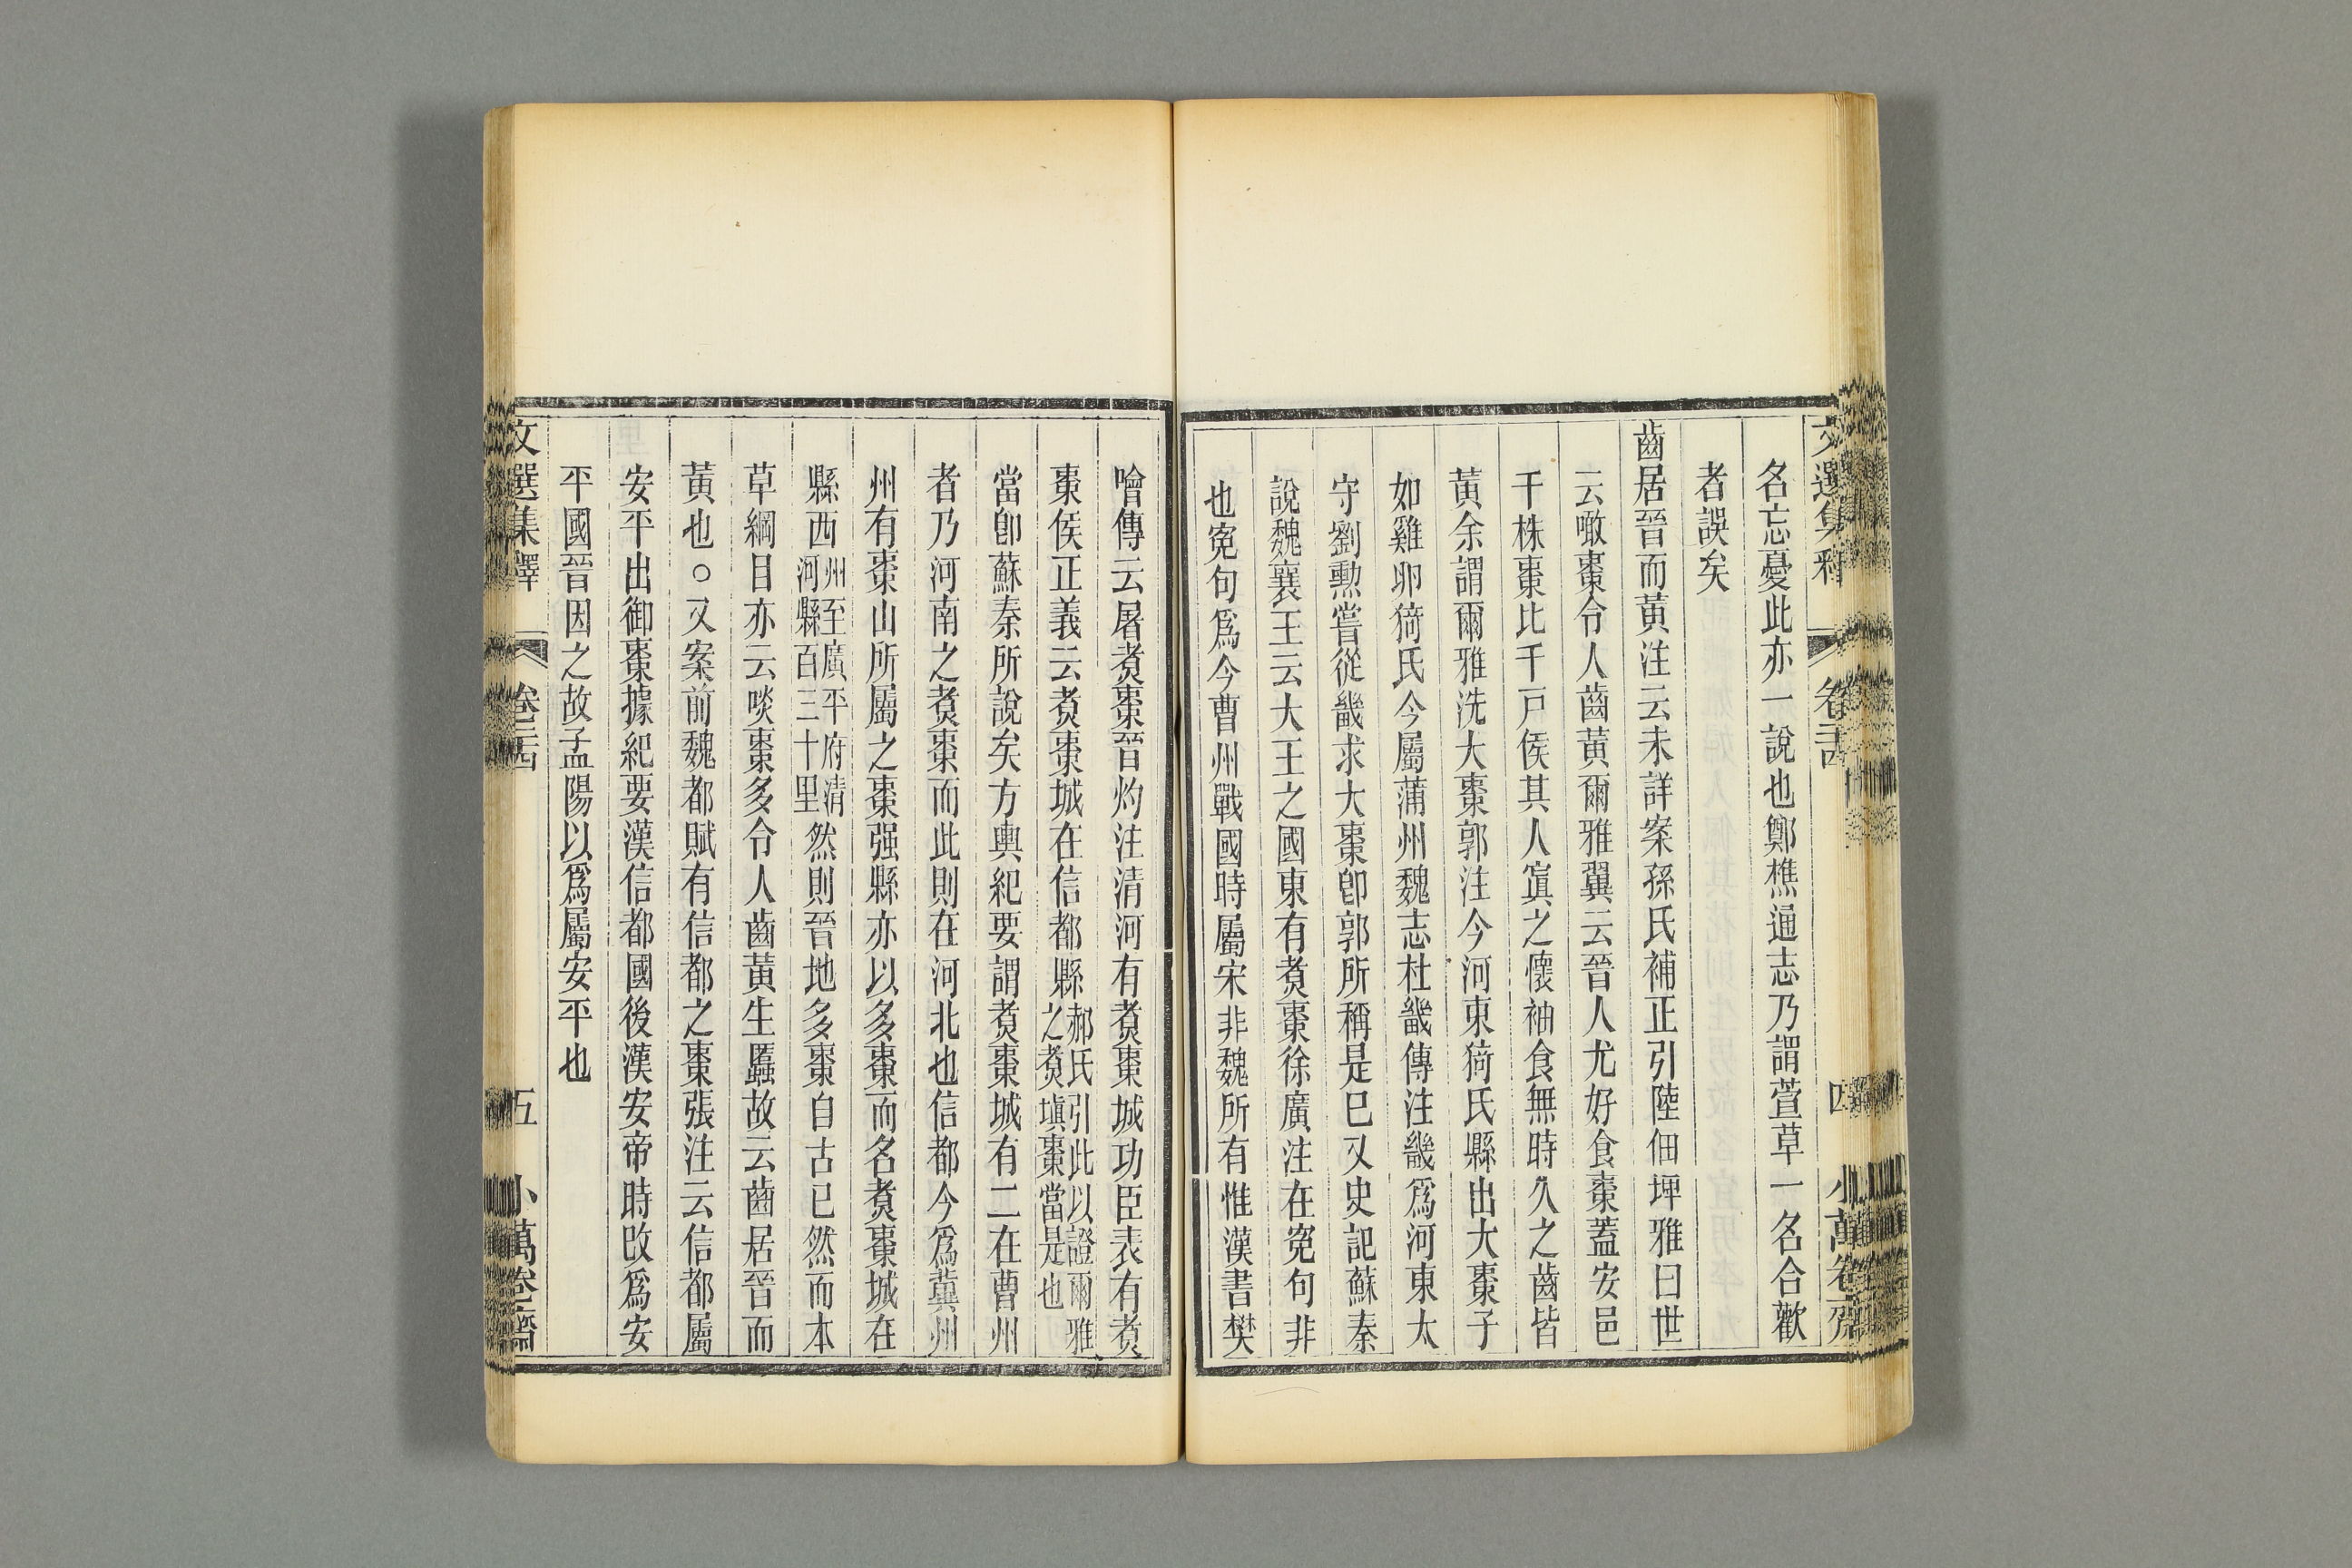 文選集釋 卷二十四 四 小萬卷齋
名忘憂此亦一說也鄭樵通志乃謂萱草一名合歡
者誤矣
齒居晉而黃注云未詳案孫氏補正引陸佃埤雅曰世
云噉棗令人齒黃爾雅翼云晉人尤好食棗蓋安邑
千株棗比千戸侯其人寘之懷袖食無時久之齒皆
黃余謂爾雅洗大棗郭注今河東猗氏縣出大棗子
如雞卵猗氏今屬蒲州魏志杜畿傳注畿爲河東太
守劉勲嘗從畿求大棗卽郭所稱是已又史記蘇秦
說魏襄王云大王之國東有煑棗徐廣注在寃句非
也寃句爲今曹州戰國時屬宋非魏所有惟漢書樊
噲傳云屠煑棗晉灼注清河有煑棗城功臣表有煑
棗侯正義云煑棗城在信都縣郝氏引此以證爾雅之煑塡棗當是也
當卽蘇秦所說矣方輿紀要謂煑棗城有二在曹州
者乃河南之煑棗而此則在河北也信都今爲冀州
州有棗山所屬之棗强縣亦以多棗而名煑棗城在
縣西州至廣平府清河縣百三十里然則晉地多棗自古已然而本
草綱目亦云啖棗多令人齒黃生䘌故云齒居晉而
黃也○又案前魏都賦有信都之棗張注云信都屬
安平出御棗據紀要漢信都國後漢安帝時改爲安
平國晉因之故孟陽以爲屬安平也
文選集釋 卷二十四 五 小萬卷齋